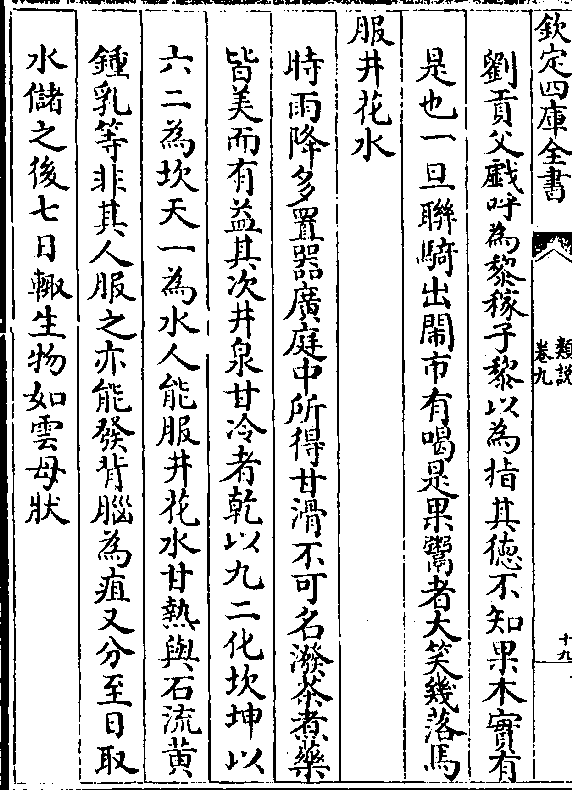 欽定四庫全書
類說
卷九
十九
劉貢父戯呼為黎檬子黎以為指其徳不知果木實有
是也一旦聯騎出閙市有喝是果鬻者大笑幾落馬
服井花水
時雨降多置器廣庭中所得甘滑不可名潑茶煮藥
皆美而有益其次井泉甘冷者乾以九二化坎坤以
六二為坎天一為水人能服井花水甘熱與石流黄
鍾乳等非其人服之亦能發背腦為疽又分至日取
水儲之後七日輙生物如雲母狀